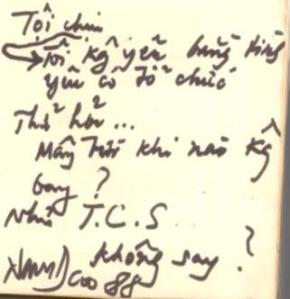 Tội chiu
Tôi kg yêu bằng tiếng
yêu có tổ chức
Thử hỏi ...
Mây trôi khi nào kg
bay ?
Như T.C.S
không say ?
88